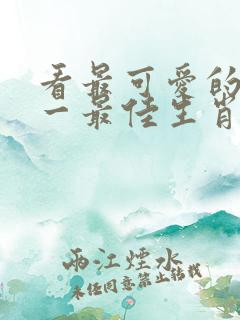 看最可爱的
一最佳生肖
両江煙水
未经同意禁止转载